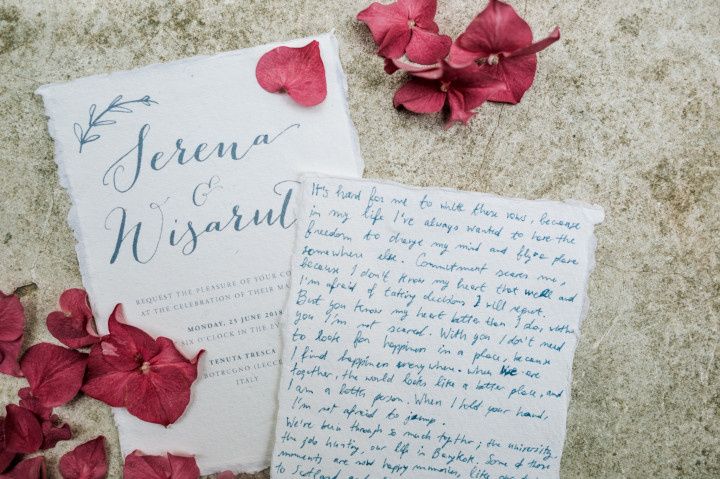 Serena
&
Wisarut
REQUEST THE PLEASURE OF YOUR CO
AT THE CELEBRATION OF THEIR MA
MONDAY, 25 JUNE 2018
SIX O'CLOCK IN THE EV
TENUTA TRESCA
BOTRUGNO (LECCE
ITALY
It's hard for me to write these rows, because
in my life I've always wanted to have the
freedom to change my mind and place
somewhere else. Commitment scares me,
because I don't know my heart that well and
I'm afraid of taking decisions I will regret.
But you know my heart better than I do, with
you I'm not scared. With you I don't need
to look for happiness in a place, because
I find happiness everywhere. When we are
together, the world looks like a better place, and
I am a better person. When I hold your hand,
I'm not afraid to jump.
We've been through so much together; the university,
the job hunting, our life in Bangkok. Some of those
moments are now happy memories, like our
to Scotland and